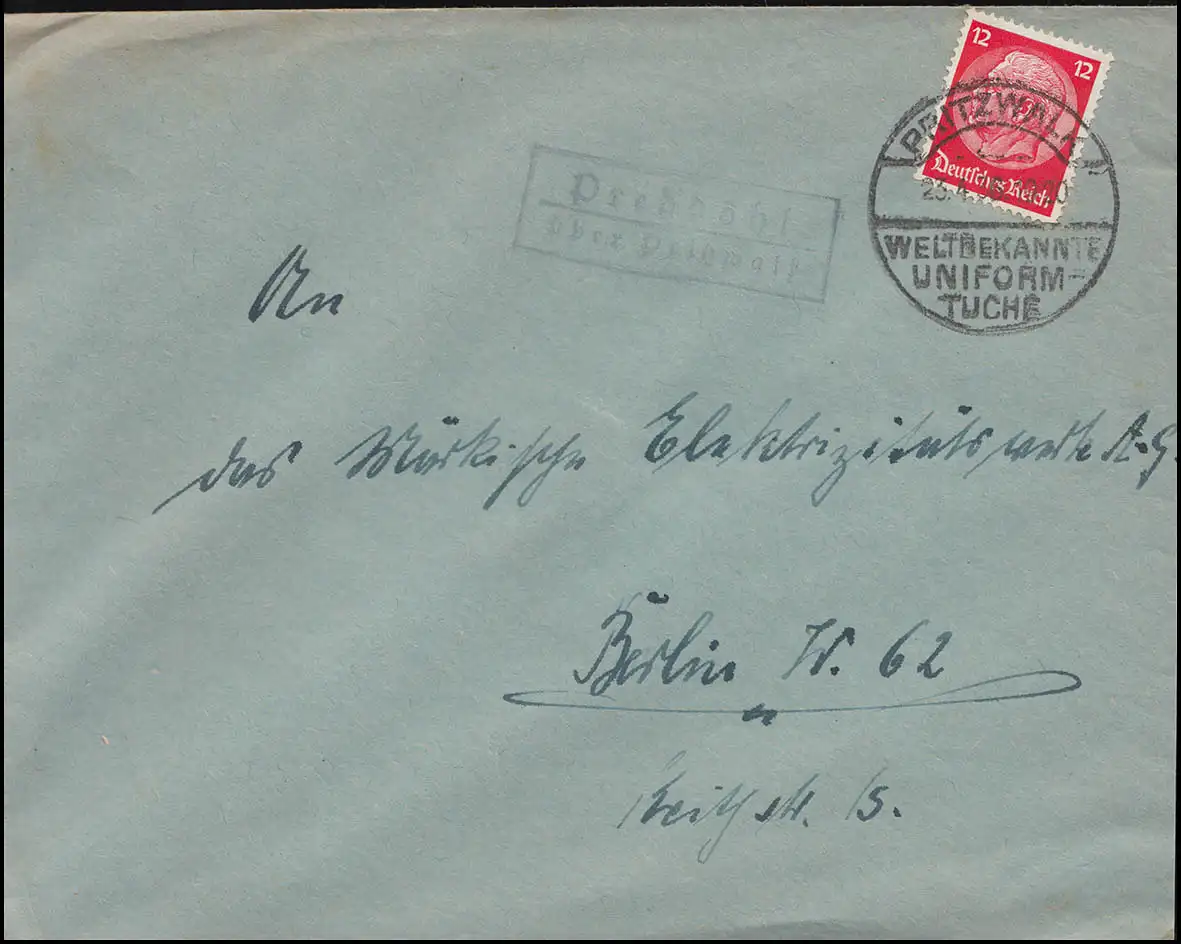 12 12
Deutsches Reich
PRITZWALK
23.4.
WELTBEKANNTE
UNIFORM-
TUCHE
Preddöhl
über Pritzwalk
An
das Märkische Elektrizitätswerk A.G.
Berlin W. 62
Keithstr. 15.